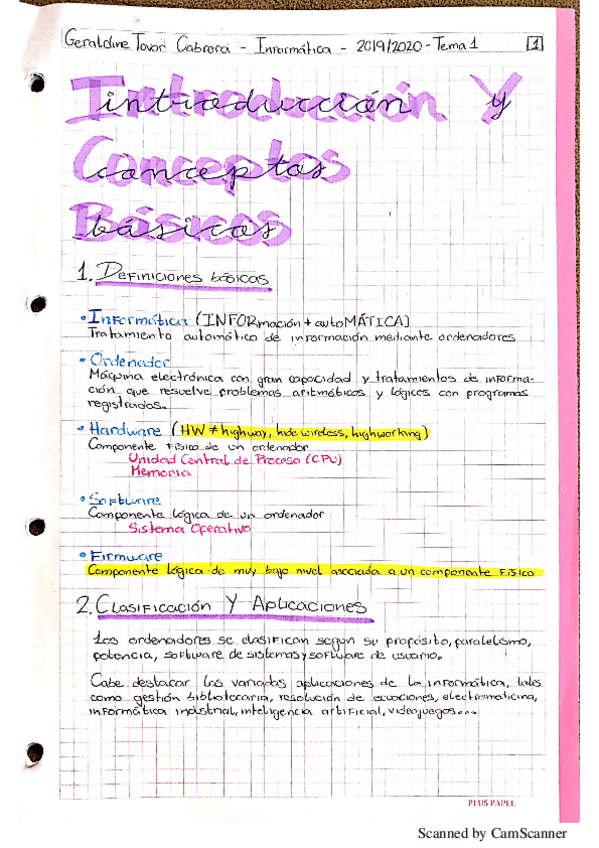 Geraldine Tovar Cabrera - Informática - 2019/2020 - Tema 1
1
Introducción Y
introducción y
Conceptos
conceptos
Básicos
básicos
1. Definiciones básicas
• Informática (INFORmación + autoMÁTICA)
Tratamiento automático de información mediante ordenadores
• Ordenador
Máquina electrónica con gran capacidad y tratamientos de informa-
ción que resuelve problemas aritméticos y lógicos con programas
registrados.
• Hardware (HW ≠ highway, hide wireless, highworking)
Componente físico de un ordenador
Unidad Central de Proceso (CPU)
Memoria
• Software
Componente lógica de un ordenador
Sistema Operativo
• Firmware
Componente lógica de muy bajo nivel asociada a un componente físico
2. Clasificación Y Aplicaciones
Los ordenadores se clasifican según su propósito, paralelismo,
potencia, software de sistemas y software de usuario.
Cabe destacar las variadas aplicaciones de la informática, tales
como gestión bibliotecaria, resolución de ecuaciones, electromedicina,
informática industrial, inteligencia artificial, videojuegos...
PLUS PAPEL
Scanned by CamScanner